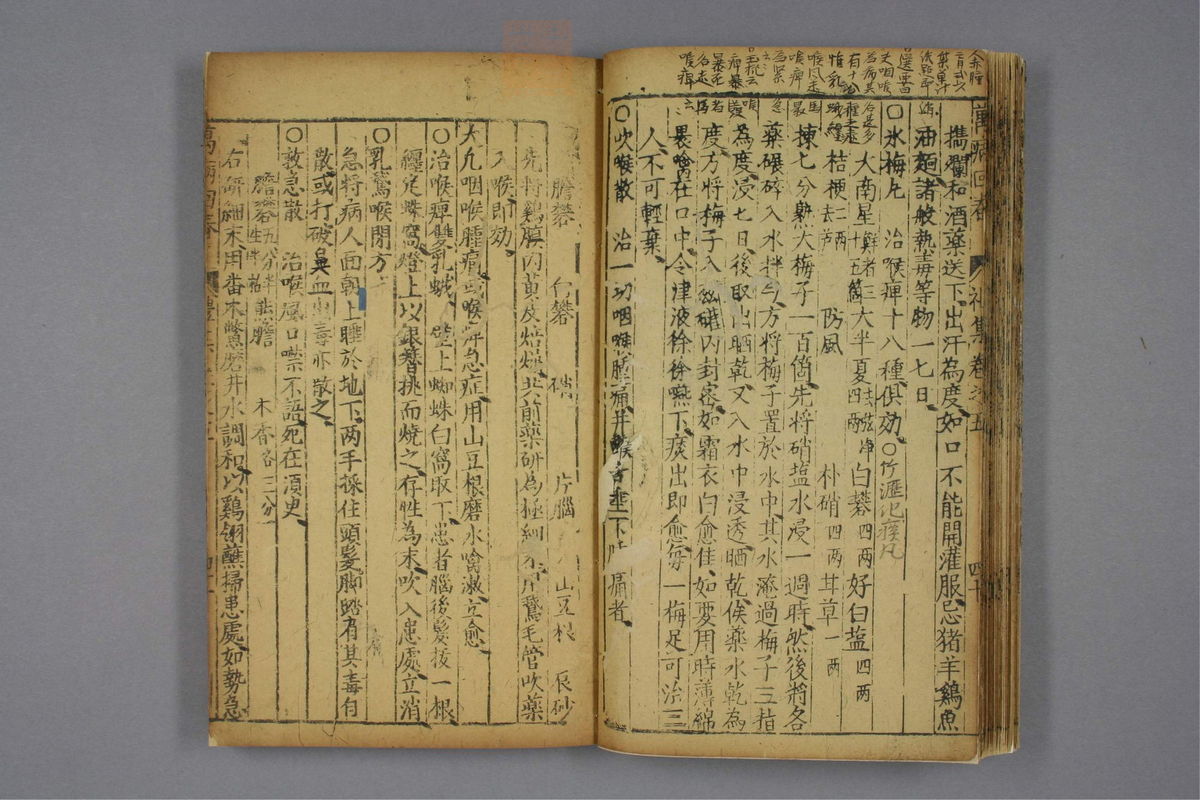 萬病回春 禮集卷之五 四十
擣爛和酒藥送下出汗為度如口不能開灌服忌猪羊鷄魚
油麵諸般熱毒等物一七日
〇氷梅丸 治喉痺十八種俱効〇竹瀝化痰丸
大南星鮮者三十五箇 大半夏四兩 白礬四兩 好白塩四兩
桔梗二兩去芦 防風 朴硝四兩 甘草一兩
揀七分熟大梅子一百箇先將硝塩水浸一週時然後將各
藥碾碎入水拌勻方將梅子置於水中其水渰過梅子三指
為度浸七日後取出晒乾又入水中浸透晒乾俟藥水乾為
度方將梅子入磁礶內封密如霜衣白愈佳如要用時薄綿
裹噙在口中令津液徐徐嚥下痰出即愈每一梅足可治三
人不可輕棄
〇吹喉散 治一切咽喉腫痛并喉舌垂下腫痛者
膽礬 白礬 硝 片腦 山豆根 辰砂
先將鷄膍內黃皮焙燥共前藥研為極細末用鵞毛管吹藥
入喉即効
大凡咽喉腫痛或喉痺急症用山豆根磨水噙漱立愈
〇治喉痺雙乳蛾 壁上蜘蛛白窩取下患者腦後髮拔一根
纏定蛛窩燈上以銀簪挑而燒之存性為末吹入患處立消
〇乳鵞喉閉方
急將病人面朝上睡於地下兩手採住頭髮脚踏肩其毒自
散或打破鼻血出毒亦散之
〇救急散 治喉風口噤不語死在湏臾
膽礬五分 牛膽 木香各三分
右研細末用番木鱉磨井水調和以鷄翎蘸掃患處如勢急